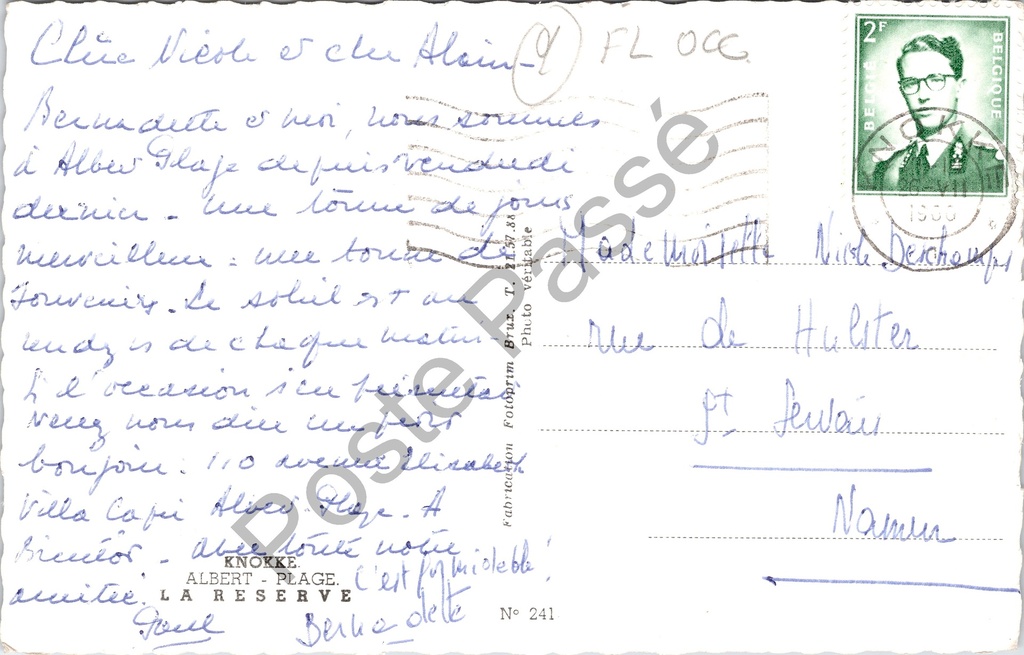 Chère Nicole et cher Alain -
Bernadette et moi, nous sommes
à Albert Plage depuis vendredi
dernier - une tonne de jours
merveilleux : une tonne de
souvenirs. Le soleil est au
rendez vs de chaque matin -
Si l'occasion s'en présentait
Venez nous dire un petit
bonjour : 110 avenue Elisabeth
Villa Capri Albert Plage. A
Bientôt - avec toute notre
amitié.
Paul
C'est formidable!
Bernadette
KNOKKE.
ALBERT - PLAGE.
LA RESERVE
N° 241
Fabrication Fotoprim Brux. T. 21.57.88
Photo véritable
4
FL OCG
2F
BELGIE
BELGIQUE
1966
Mademoiselle Nicole Deschamps
rue de Hulster
St Servais
Namur
Poste Passé